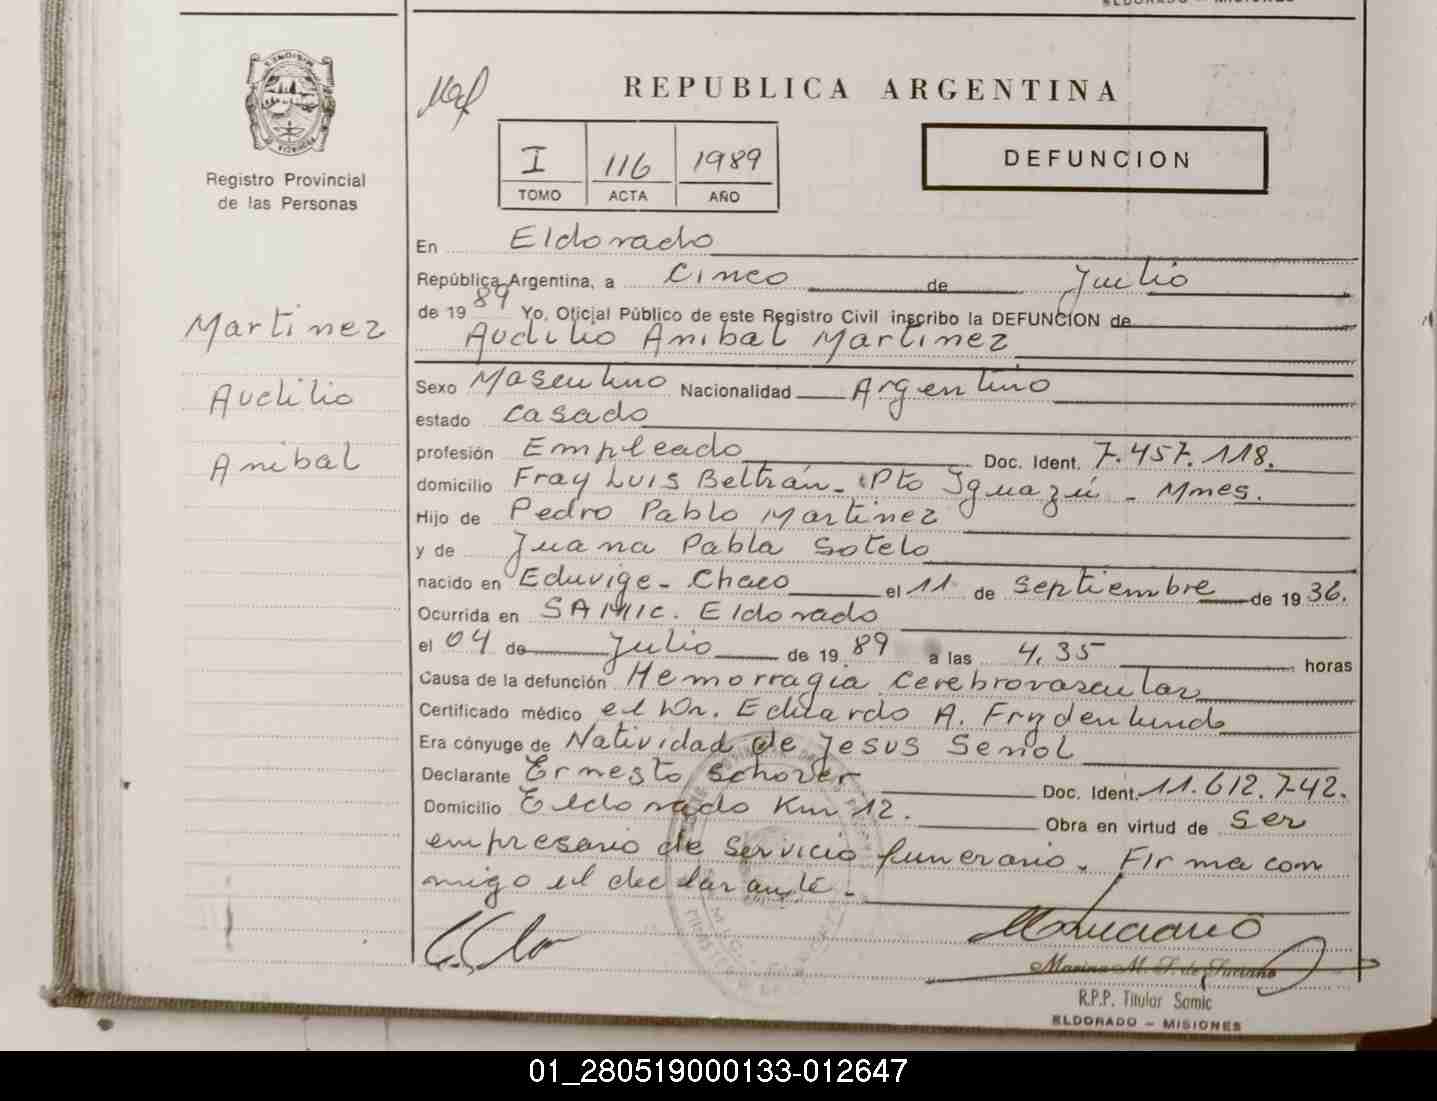 ELDORADO - MISIONES
REPUBLICA ARGENTINA
I 116 1989
TOMO ACTA AÑO
DEFUNCION
Registro Provincial
de las Personas
Martinez
Audilio
Anibal
En Eldorado
República Argentina, a Cinco de Julio
de 1989 Yo, Oficial Público de este Registro Civil inscribo la DEFUNCION de
Audilio Anibal Martinez
Sexo Masculino Nacionalidad Argentino
estado casado
profesión Empleado Doc. Ident. 7.457.118.
domicilio Fray Luis Beltrán - Pto Iguazú - Mnes.
Hijo de Pedro Pablo Martinez
y de Juana Pabla Sotelo
nacido en Eduvige - Chaco el 11 de septiembre de 1936.
Ocurrida en SAMIC. Eldorado
el 04 de Julio de 1989 a las 4,35 horas
Causa de la defunción Hemorragia cerebrovascular
Certificado médico el Dr. Eduardo A. Frydenlund
Era cónyuge de Natividad de Jesus Senol
Declarante Ernesto Schover Doc. Ident. 11.612.742.
Domicilio Eldorado Km 12. Obra en virtud de ser
empresario de servicio funerario. Firma con
migo el declarante.
Marina M. S. de Luciano
R.P.P. Titular Samic
ELDORADO - MISIONES
01_280519000133-012647